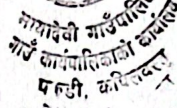 मायादेवी गाउँपालिका
गाउँ कार्यपालिकाको कार्यालय
पकडी, कपिलवस्तु